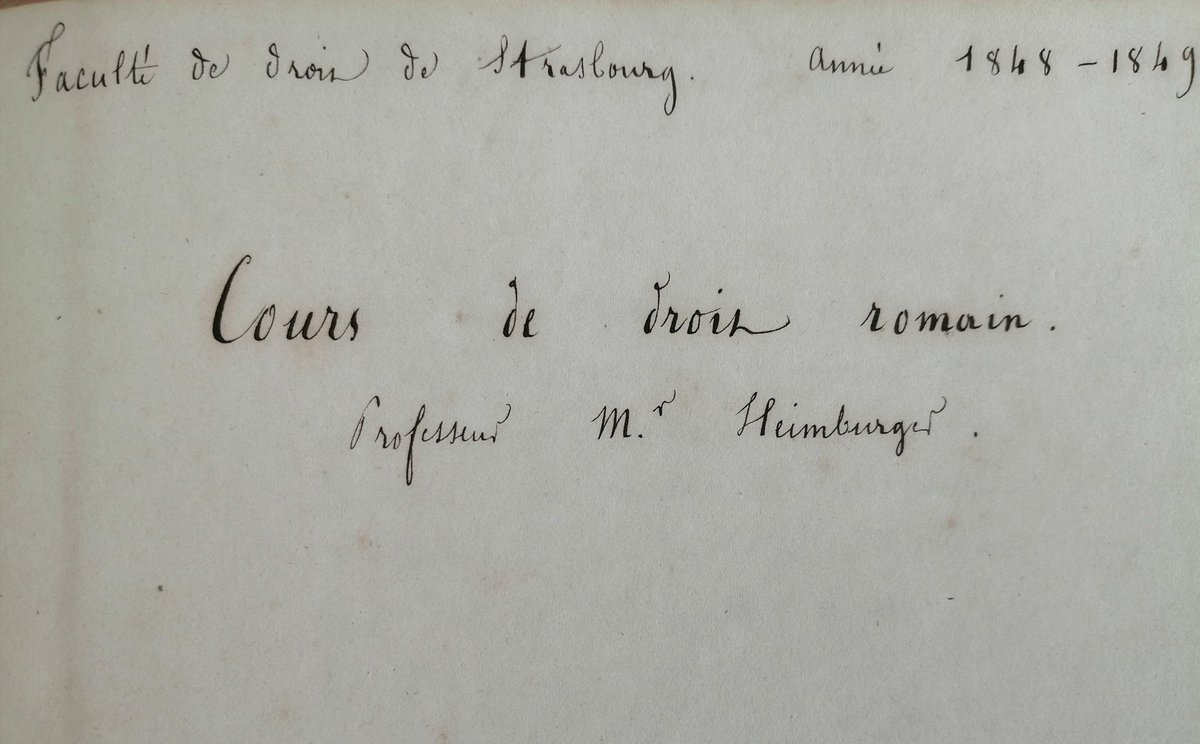 Faculté de droit de Strasbourg. Année 1848-1849
Cours de droit romain.
Professeur M.r Heimburger.